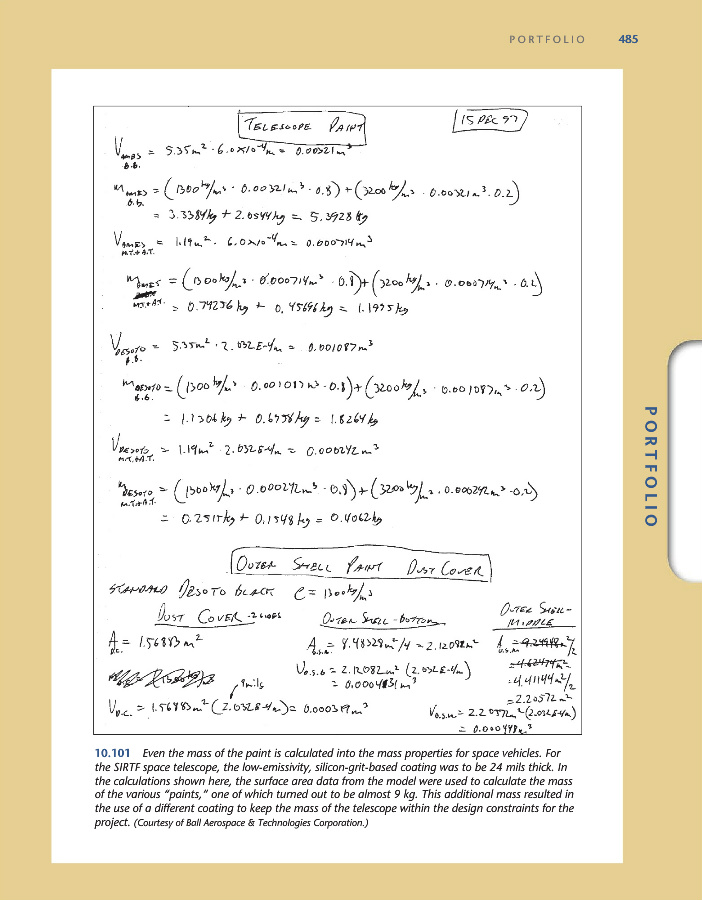 PORTFOLIO 485
TELESCOPE PAINT
15 DEC 97
V AMES B.B. = 5.35m² · 6.0×10⁻⁴m = 0.00321m³
m AMES B.B. = (1300 kg/m³ · 0.00321m³ · 0.8) + (3200 kg/m³ · 0.00321m³ · 0.2)
= 3.3384kg + 2.0544kg = 5.3928kg
V AMES M.T.+A.T. = 1.19m² · 6.0×10⁻⁴m = 0.000714m³
m AMES M.T.+A.T. = (1300kg/m³ · 0.000714m³ · 0.8) + (3200 kg/m³ · 0.000714m³ · 0.2)
= 0.74256 kg + 0.45696 kg = 1.1995 kg
V DESOTO B.B. = 5.35m² · 2.032E-4m = 0.001087m³
m DESOTO B.B. = (1300 kg/m³ · 0.001087m³ · 0.8) + (3200kg/m³ · 0.001087m³ · 0.2)
= 1.1306kg + 0.6958kg = 1.8264kg
V DESOTO M.T.+A.T. = 1.19m² · 2.032E-4m = 0.000242m³
m DESOTO M.T.+A.T. = (1300kg/m³ · 0.000242m³ · 0.8) + (3200kg/m³ · 0.000242m³ · 0.2)
= 0.2515kg + 0.1548kg = 0.4062kg
OUTER SHELL PAINT DUST COVER
STANDARD DESOTO BLACK ρ = 1300kg/m³
DUST COVER - 2 SIDES
A D.C. = 1.56883m²
8mils
V D.C. = 1.56883m² (2.032E-4m) = 0.000319m³
OUTER SHELL - BOTTOM
A O.S.B. = 8.48328m²/4 = 2.12082m²
V O.S.B = 2.12082m² (2.032E-4m)
= 0.0004831m³
OUTER SHELL -
MIDDLE
A O.S.M = 9.24948m²/2
= 4.62474m²
= 4.41144m²/2
= 2.20572m²
V O.S.M = 2.20572m² (2.032E-4m)
= 0.000448m³
PORTFOLIO
10.101 Even the mass of the paint is calculated into the mass properties for space vehicles. For
the SIRTF space telescope, the low-emissivity, silicon-grit-based coating was to be 24 mils thick. In
the calculations shown here, the surface area data from the model were used to calculate the mass
of the various “paints,” one of which turned out to be almost 9 kg. This additional mass resulted in
the use of a different coating to keep the mass of the telescope within the design constraints for the
project. (Courtesy of Ball Aerospace & Technologies Corporation.)